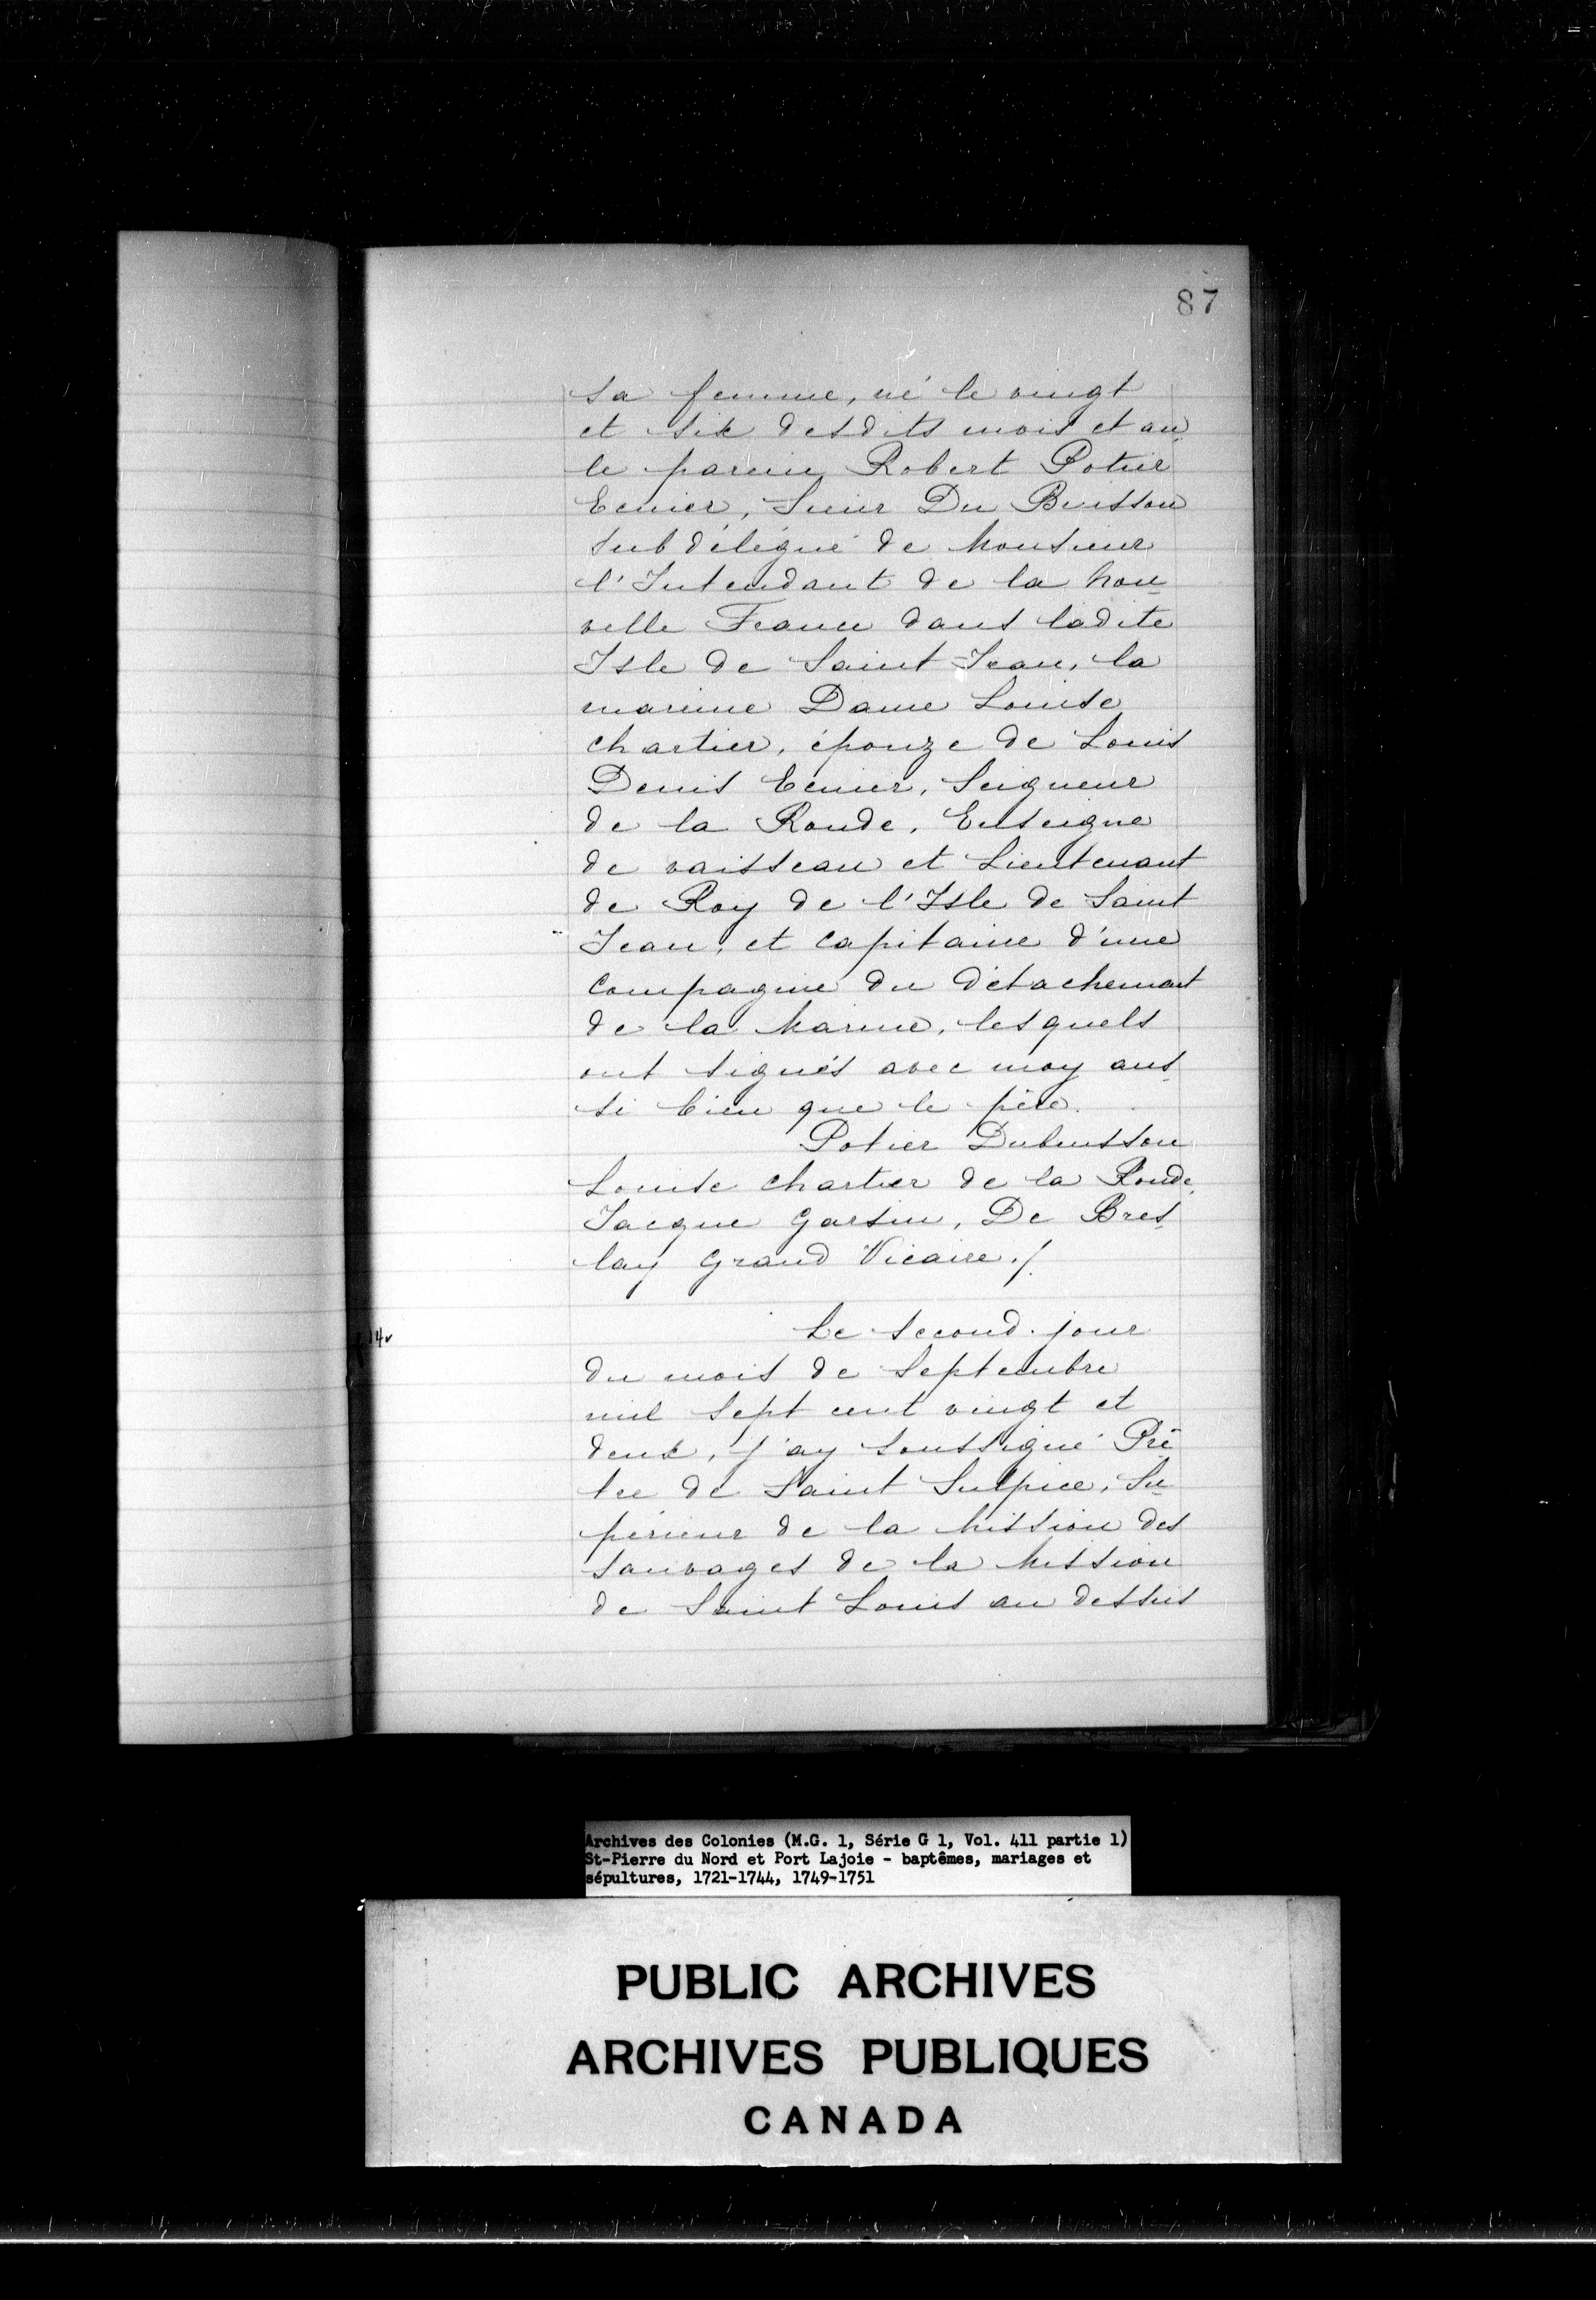 87
sa femme, né le vingt
et six desdits mois et an
le parein Robert Potier
Ecuier, Sieur Du Buisson
subdélégué de Monsieur
l'Intendant de la Nou
velle France dans ladite
Isle de Saint Jean, la
mareine Dame Louise
Chartier, épouze de Louis
Denis Ecuier, Seigneur
de la Ronde, Enseigne
de vaisseau et Lieutenant
de Roy de l'Isle de Saint
Jean, et Capitaine d'une
Compagnie du détachement
de la Marine, lesquels
ont signés avec moy aus
si bien que le père.
Potier Dubuisson
Louise Chartier de la Ronde,
Jacque Garsin, De Bres
lay Grand Vicaire./.
f.14v
Le second jour
du mois de Septembre
mil sept cent vingt et
deux, j'ay soussigné Prê
tre de Saint Sulpice, Su
périeur de la Mission des
sauvages de la Mission
de Saint Louis au dessus
Archives des Colonies (M.G. 1, Série G 1, Vol. 411 partie 1)
St-Pierre du Nord et Port Lajoie - baptêmes, mariages et
sépultures, 1721-1744, 1749-1751
PUBLIC ARCHIVES
ARCHIVES PUBLIQUES
CANADA